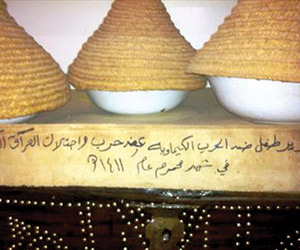 طفل ضد الحرب الكيماوية عند حرب واحتلال العراق
في شهر محرم عام ١٤١١هـ